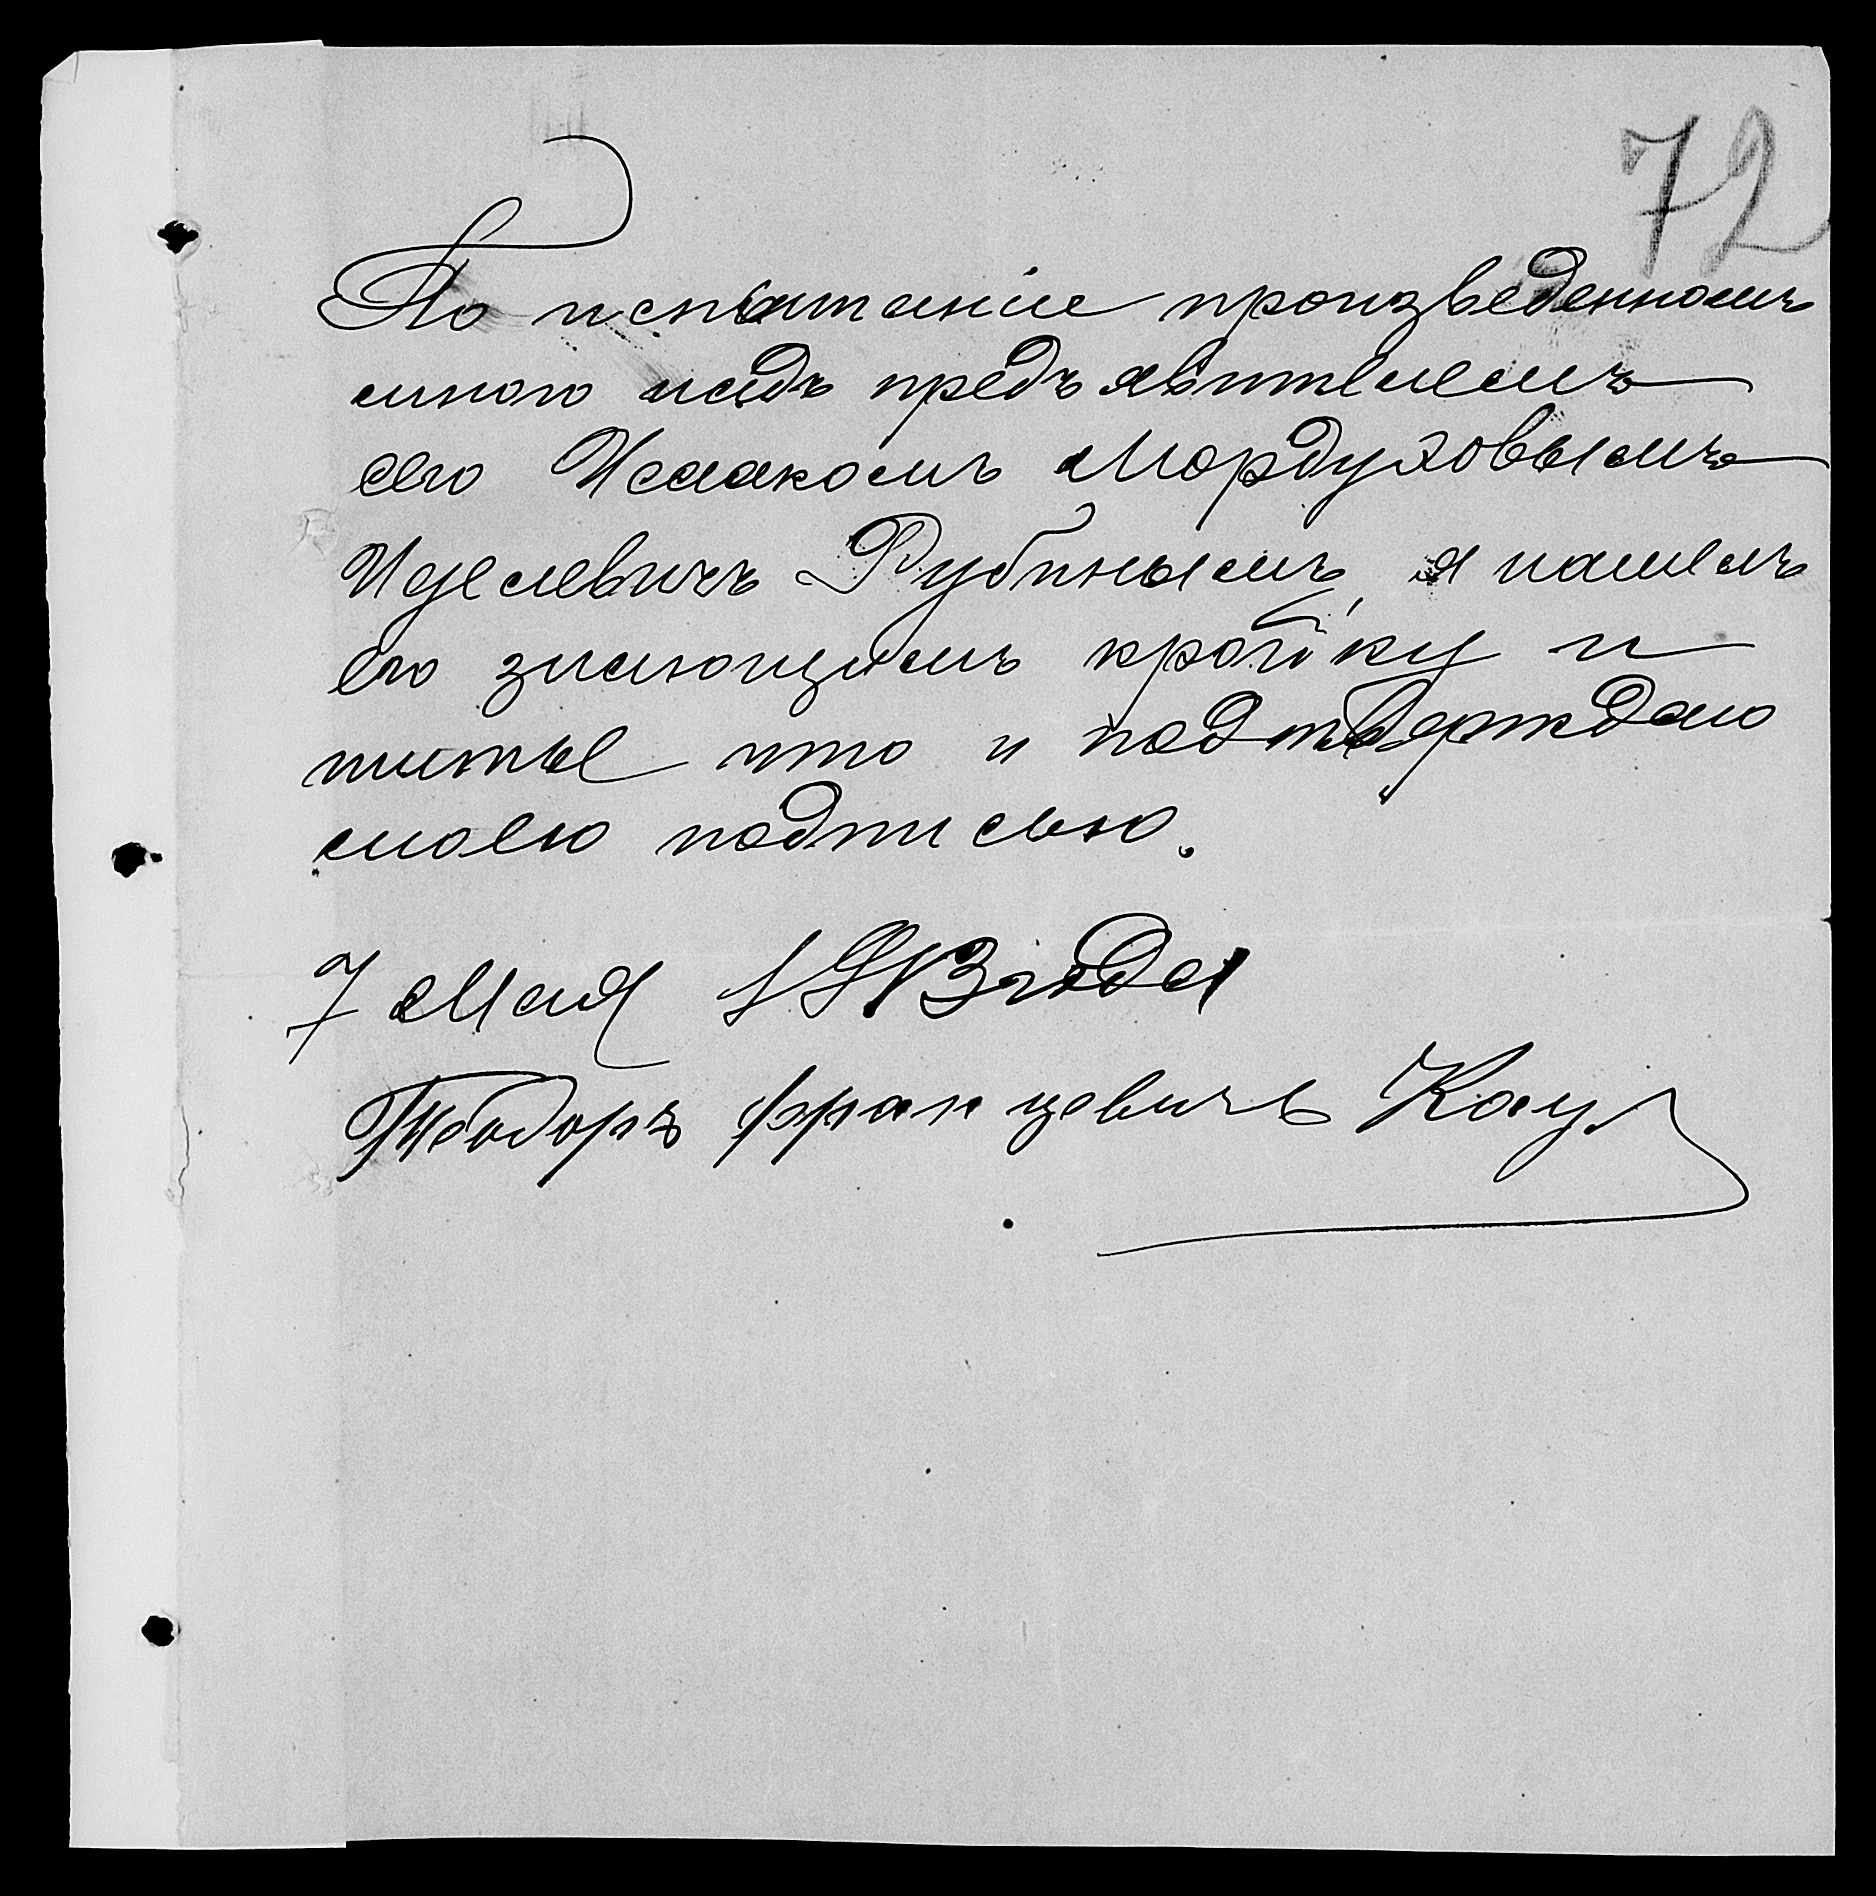 72
По испытаніе произведенномъ
мною надъ предъявителемъ
сего Исаакомъ Мордуховымъ
Иделевичъ Рубинымъ, я нашелъ
его знающимъ кройку и
шитье что и подтверждаю
моею подписью.
7 Мая года
Теодоръ Францевичъ